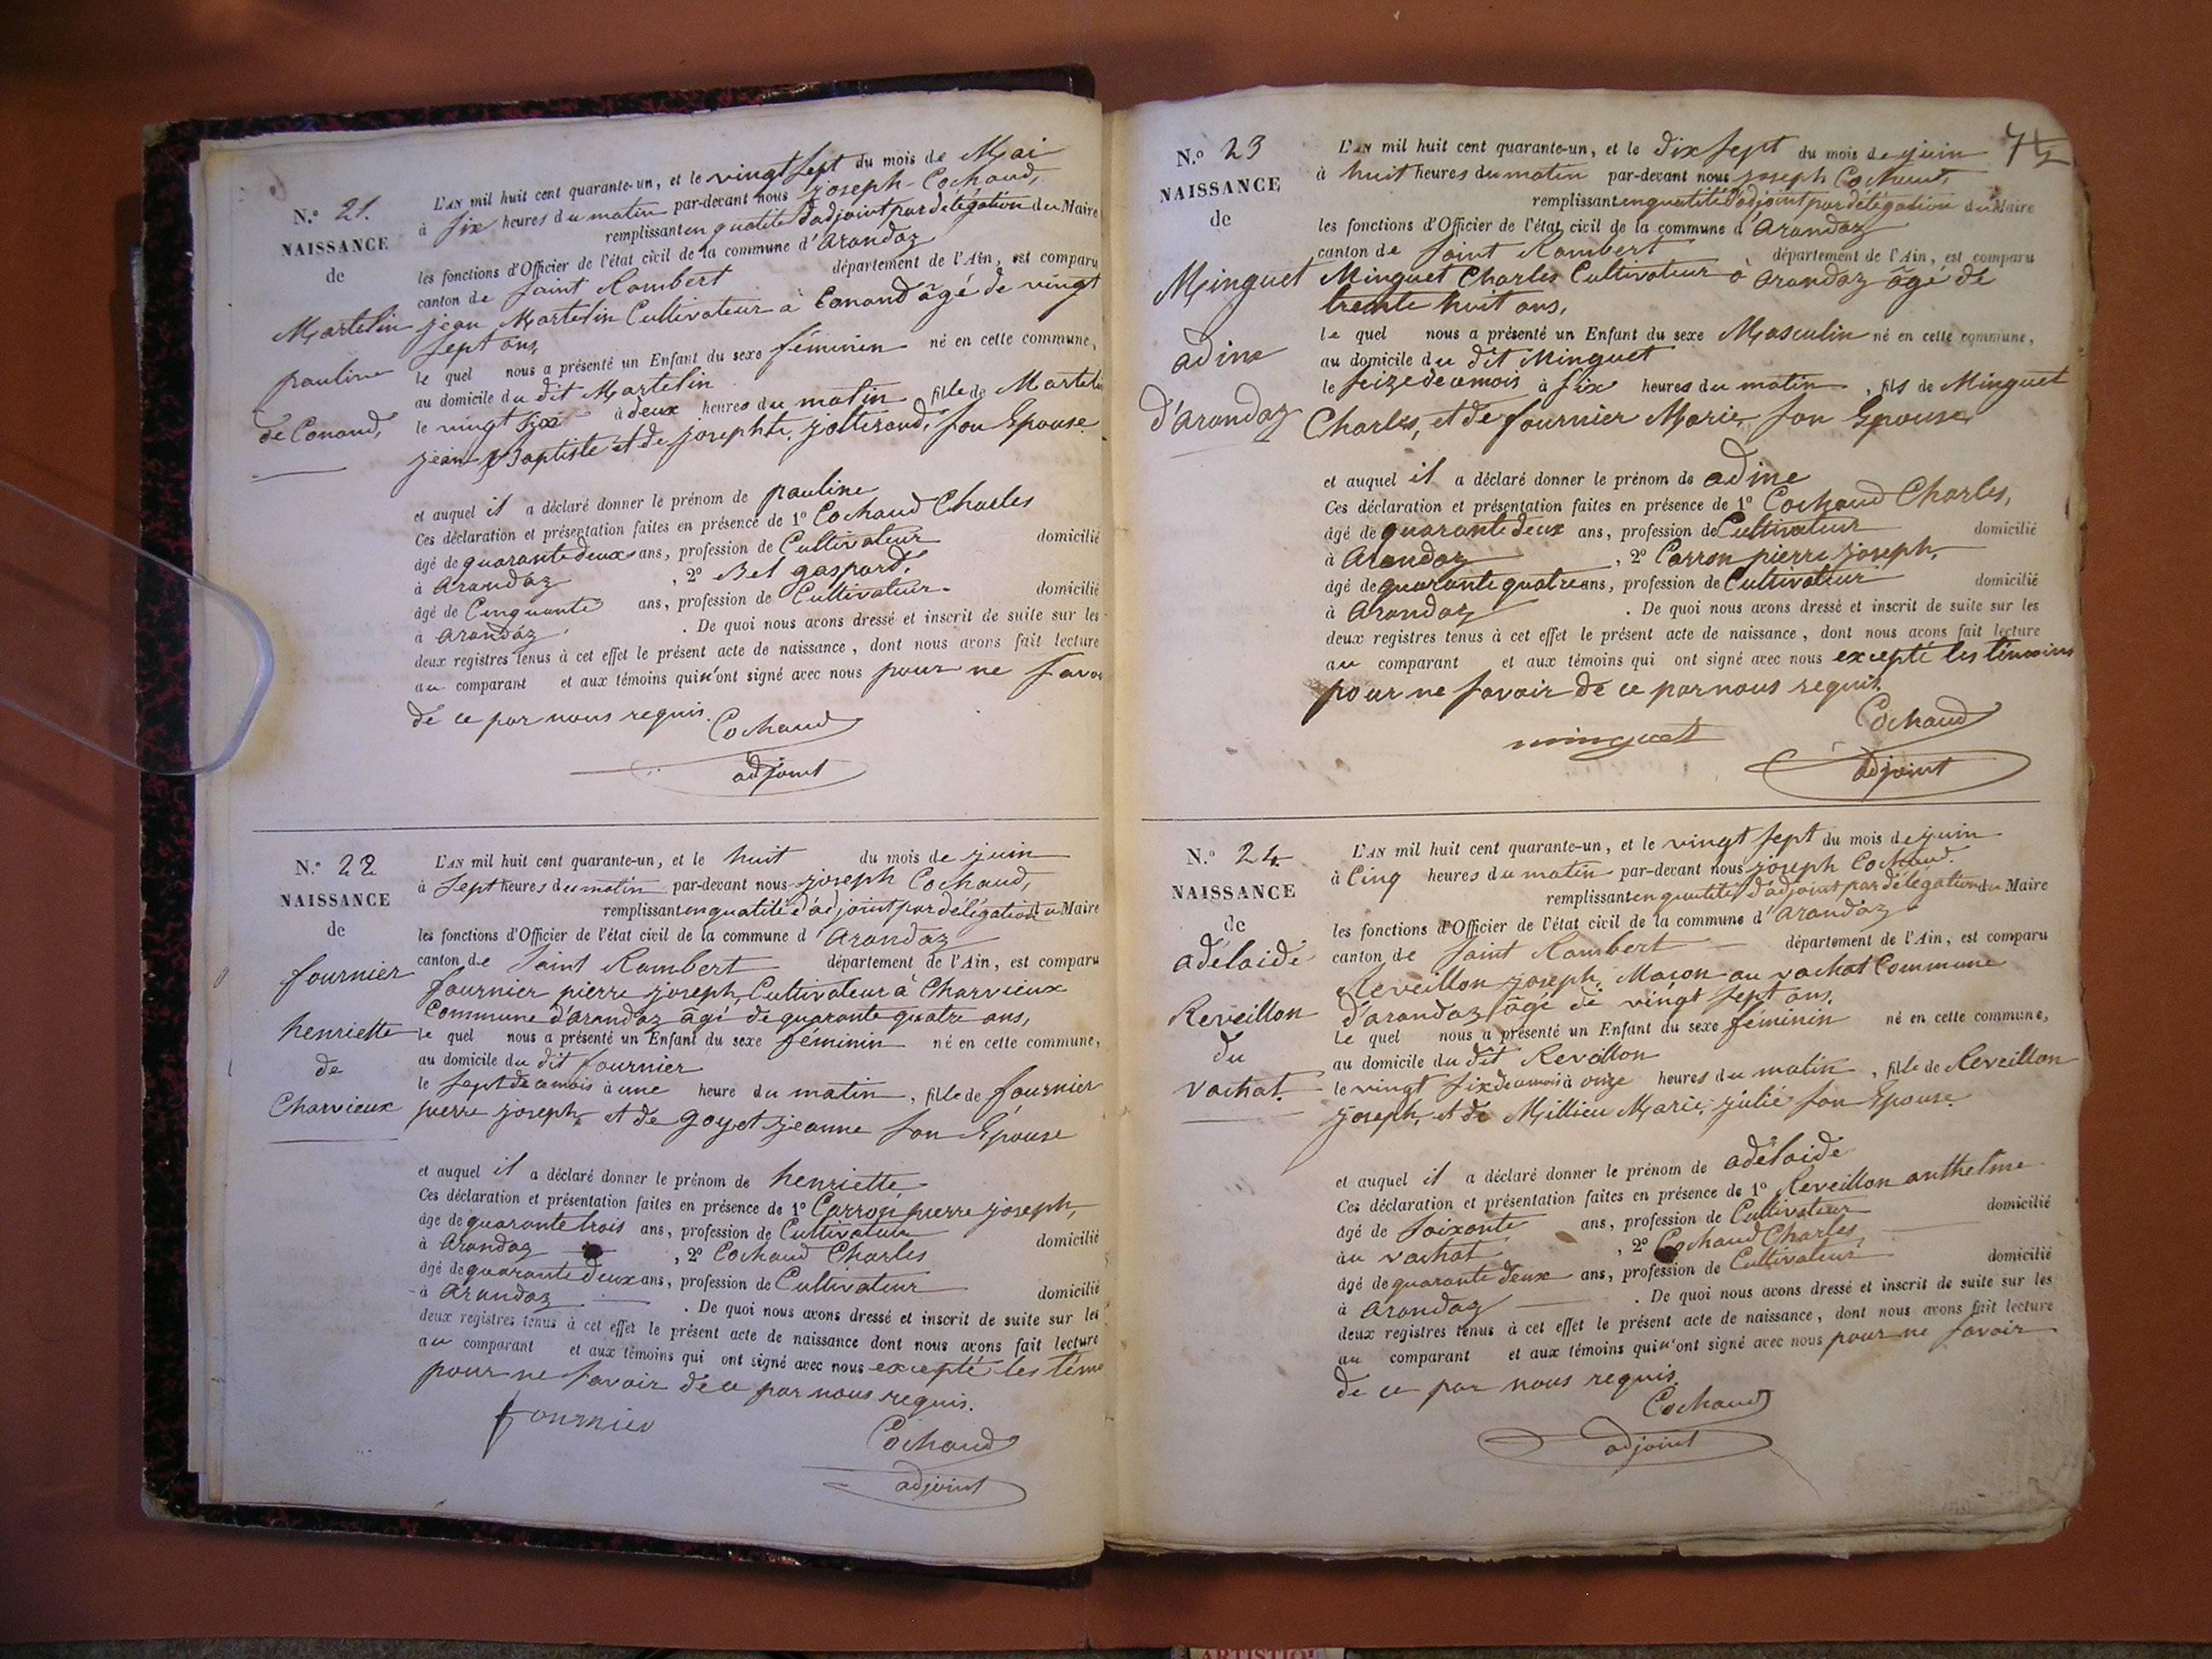 N.o 21.
NAISSANCE
de
Martelin
pauline
de Conand,
L'AN mil huit cent quarante-un, et le vingt sept du mois de Mai
à six heures du matin par-devant nous joseph Cochaud,
remplissant en qualité d'adjoint par délégation du Maire
les fonctions d'Officier de l'état civil de la commune d'arandaz
canton de Saint Rambert département de l'Ain, est comparu
jean Martelin Cultivateur à Conand âgé de vingt
sept ans,
le quel nous a présenté un Enfant du sexe féminin né en cette commune,
au domicile du dit Martelin
le vingt six à deux heures du matin, fille de Martelin
jean Baptiste et de josephte jolliraud, son Epouse
et auquel il a déclaré donner le prénom de pauline
Ces déclaration et présentation faites en présence de 1o Cochaud Charles
âgé de quarante deux ans, profession de Cultivateur domicilié
à arandaz, 2o Bel gaspard,
âgé de Cinquante ans, profession de Cultivateur. domicilié
à arandaz. De quoi nous avons dressé et inscrit de suite sur les
deux registres tenus à cet effet le présent acte de naissance, dont nous avons fait lecture
au comparant et aux témoins qui n'ont signé avec nous pour ne savoir
de ce par nous requis.
Cochaud
adjoint
N.o 22
NAISSANCE
de
fournier
henriette
de
Charvieux
L'AN mil huit cent quarante-un, et le huit du mois de juin
à sept heures du matin par-devant nous joseph Cochaud,
remplissant en qualité d'adjoint par délégation du Maire
les fonctions d'Officier de l'état civil de la commune d'arandaz
canton de Saint Rambert département de l'Ain, est comparu
fournier pierre joseph, Cultivateur à Charvieux
Commune d'arandaz âgé de quarante quatre ans,
le quel nous a présenté un Enfant du sexe féminin né en cette commune,
au domicile du dit fournier
le sept de ce mois à une heure du matin, fille de fournier
pierre joseph, et de goyet jeanne son Epouse
et auquel il a déclaré donner le prénom de henriette
Ces déclaration et présentation faites en présence de 1o Carron pierre joseph,
âgé de quarante trois ans, profession de Cultivateur domicilié
à arandaz, 2o Cochaud Charles
âgé de quarante deux ans, profession de Cultivateur domicilié
à arandaz. De quoi nous avons dressé et inscrit de suite sur les
deux registres tenus à cet effet le présent acte de naissance dont nous avons fait lecture
au comparant et aux témoins qui ont signé avec nous excepté les témo
pour ne savoir de ce par nous requis.
fournier
Cochaud
adjoint
N.o 23
NAISSANCE
de
Minguet
adine
d'arandaz
L'AN mil huit cent quarante-un, et le dix sept du mois de juin
à huit heures du matin par-devant nous joseph Cochaud,
remplissant en qualité d'adjoint par délégation du Maire
les fonctions d'Officier de l'état civil de la commune d'arandaz
canton de Saint Rambert département de l'Ain, est comparu
Minguet Charles Cultivateur à arandaz âgé de
trente huit ans,
le quel nous a présenté un Enfant du sexe Masculin né en cette commune,
au domicile du dit Minguet
le seize de ce mois à six heures du matin, fils de Minguet
Charles, et de fournier Marie, son Epouse
et auquel il a déclaré donner le prénom de adine
Ces déclaration et présentation faites en présence de 1o Cochaud Charles,
âgé de quarante deux ans, profession de Cultivateur domicilié
à arandaz, 2o Carron pierre joseph,
âgé de quarante quatre ans, profession de Cultivateur domicilié
à arandaz. De quoi nous avons dressé et inscrit de suite sur les
deux registres tenus à cet effet le présent acte de naissance, dont nous avons fait lecture
au comparant et aux témoins qui ont signé avec nous excepté les témoins
pour ne savoir de ce par nous requis.
minguet
Cochaud
adjoint
N.o 24
NAISSANCE
de
adélaide
Reveillon
du
vachat.
L'AN mil huit cent quarante-un, et le vingt sept du mois de juin
à Cinq heures du matin par-devant nous joseph Cochaud.
remplissant en qualité d'adjoint par délégation du Maire
les fonctions d'Officier de l'état civil de la commune d'arandaz
canton de Saint Rambert département de l'Ain, est comparu
Reveillon joseph, Maçon au vachat Commune
d'arandaz âgé de vingt sept ans.
le quel nous a présenté un Enfant du sexe féminin né en cette commune,
au domicile du dit Reveillon
le vingt six de ce mois à onze heures du matin, fille de Reveillon
joseph, et de Millieu Marie julie son Epouse
et auquel il a déclaré donner le prénom de adélaide
Ces déclaration et présentation faites en présence de 1o Reveillon anthelme
âgé de soixante ans, profession de Cultivateur domicilié
au vachat, 2o Cochaud Charles
âgé de quarante deux ans, profession de Cultivateur domicilié
à arandaz. De quoi nous avons dressé et inscrit de suite sur les
deux registres tenus à cet effet le présent acte de naissance, dont nous avons fait lecture
au comparant et aux témoins qui n'ont signé avec nous pour ne savoir
de ce par nous requis.
Cochaud
adjoint